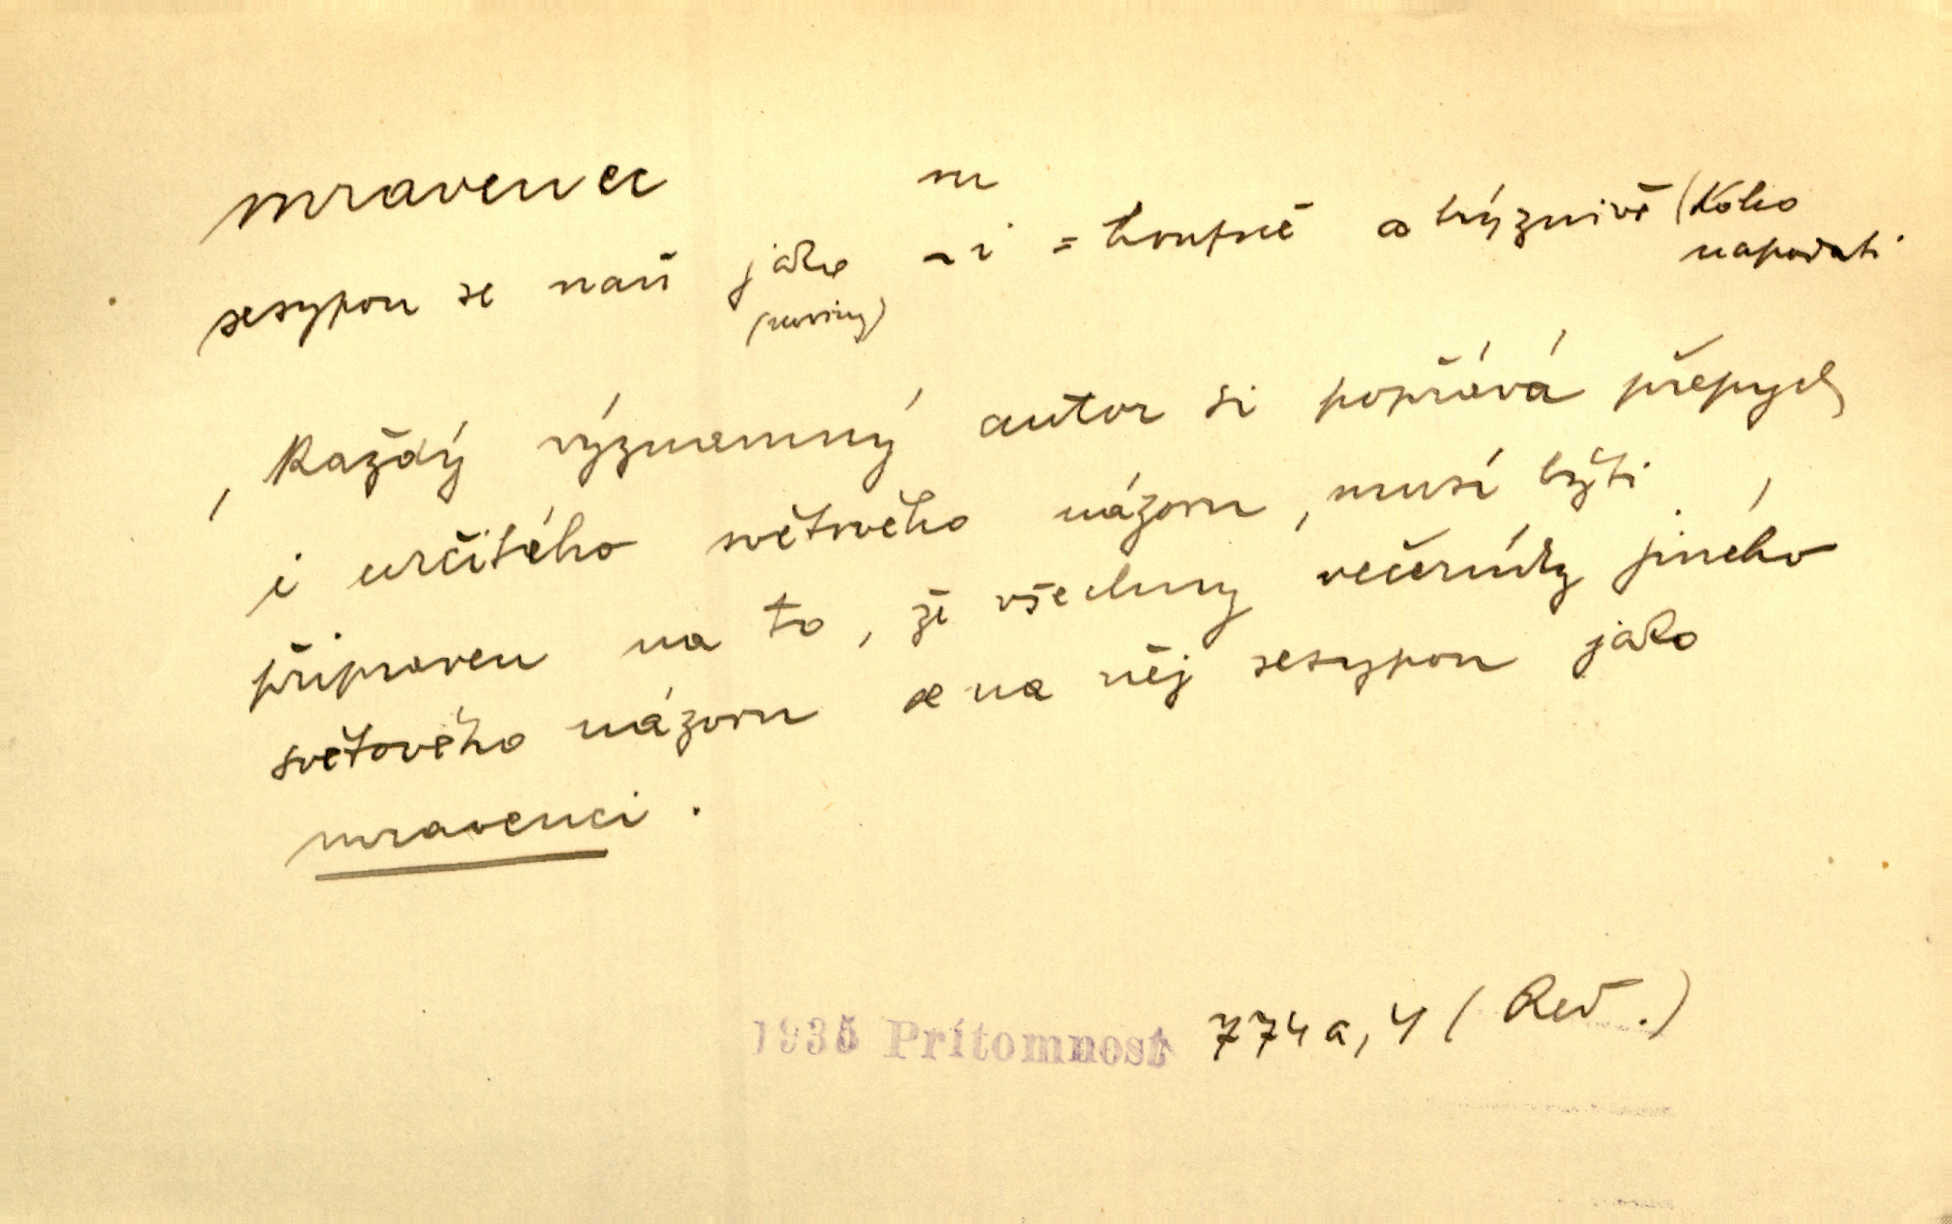 mravenec m
sesypou se naň jako -i = houfně a trýznivě (koho
(noviny) napadati
Každý významný autor si popřává přepych
i určitého světového názoru, musí býti
připraven na to, že všechny večerníky jiného
světového názoru se na něj sesypou jako
mravenci.
1935 Přítomnost 774a, 4 (Red.)